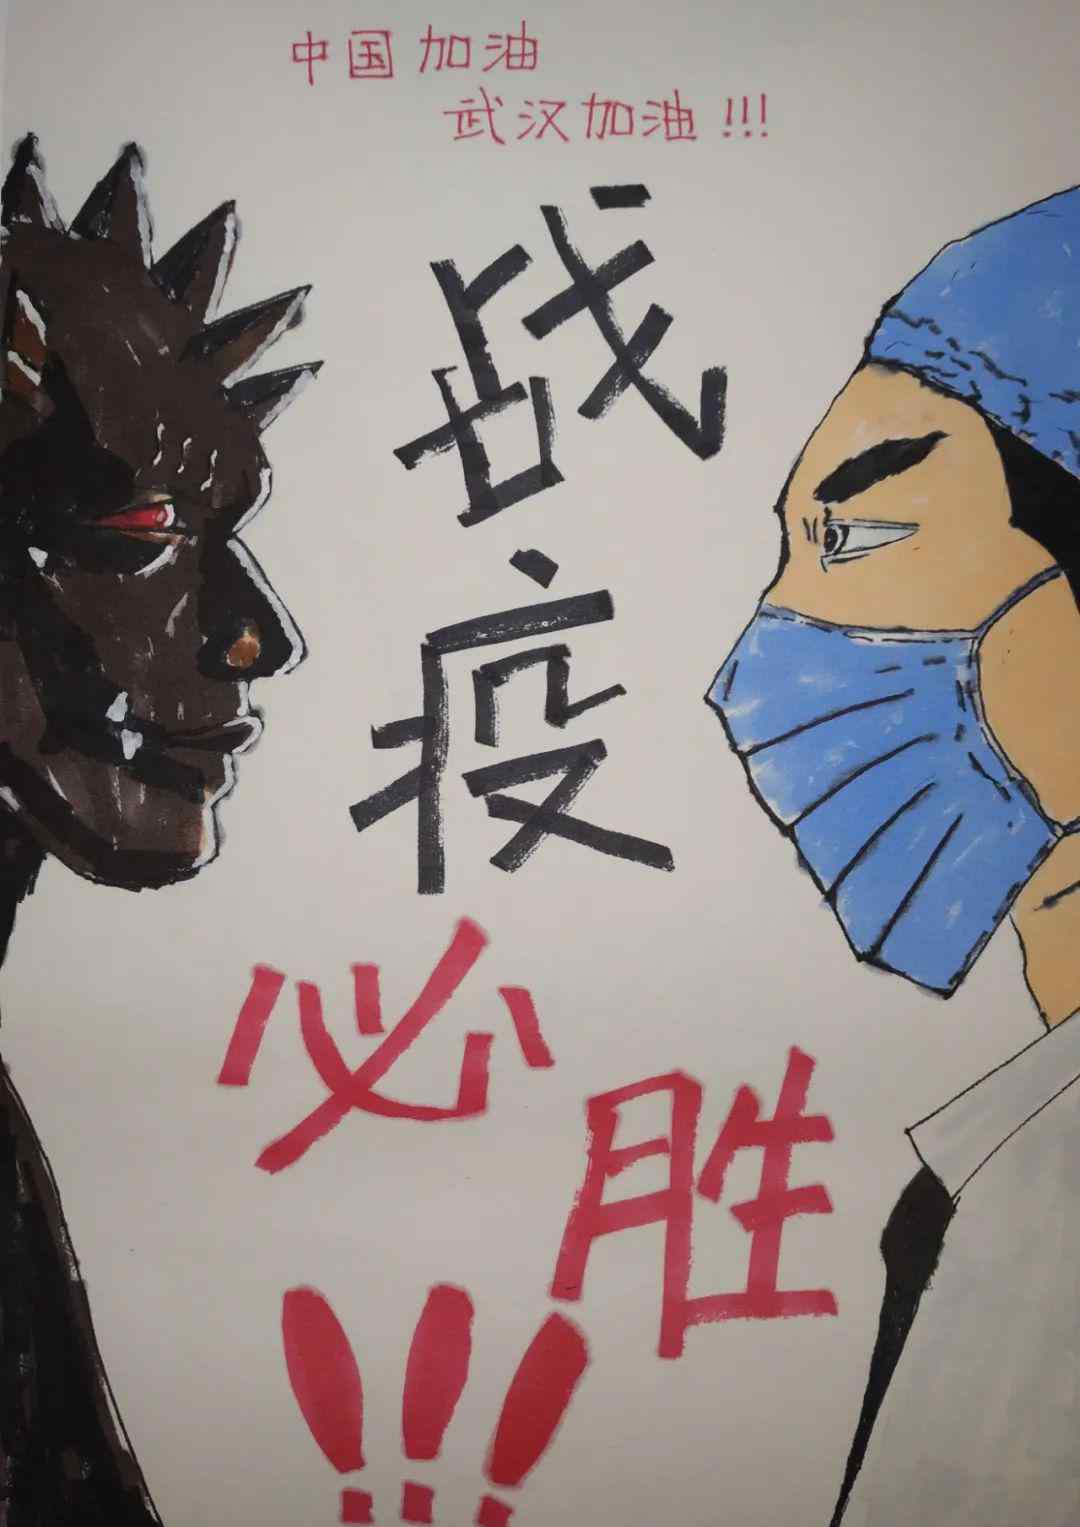 中国加油
武汉加油!!!
战
疫
必
胜
!!!